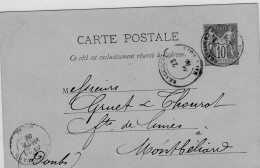 CARTE POSTALE
Ce côté est exclusivement réservé à l'adresse.
10
M Messieurs
Gruet & Thourot
fts de limes
à
Montbéliard
Doubs